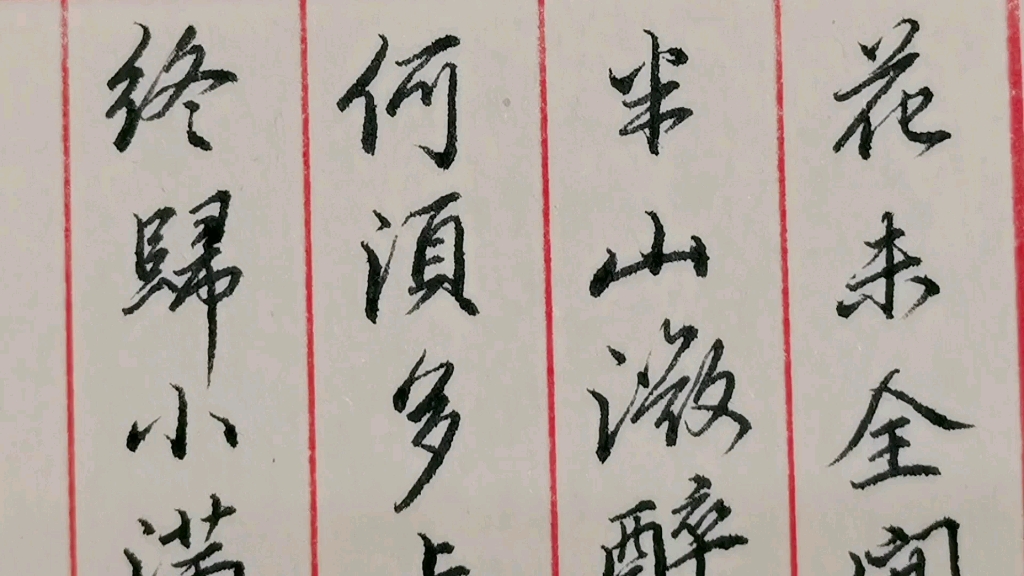 花未全開
半山微醉
何須多
終歸小滿